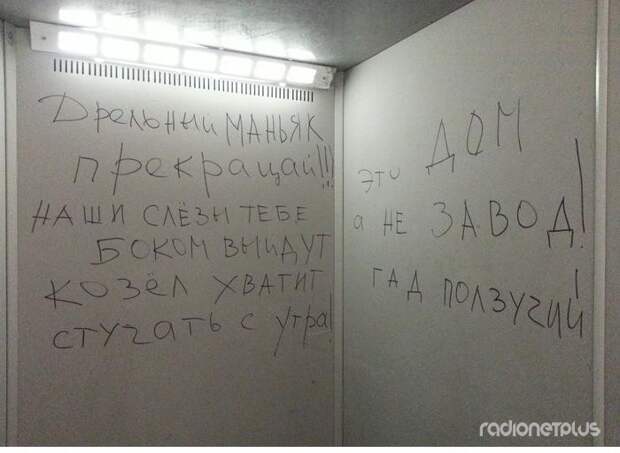 Дрельный МАНЬЯК
прекращай!!!
НАШИ СЛЁЗЫ ТЕБЕ
БОКОМ ВЫЙДУТ
КОЗЁЛ ХВАТИТ
СТУЧАТЬ С УТРА!
ЭТО ДОМ
а НЕ ЗАВОД!
ГАД ПОЛЗУЧИЙ!
radionetplus